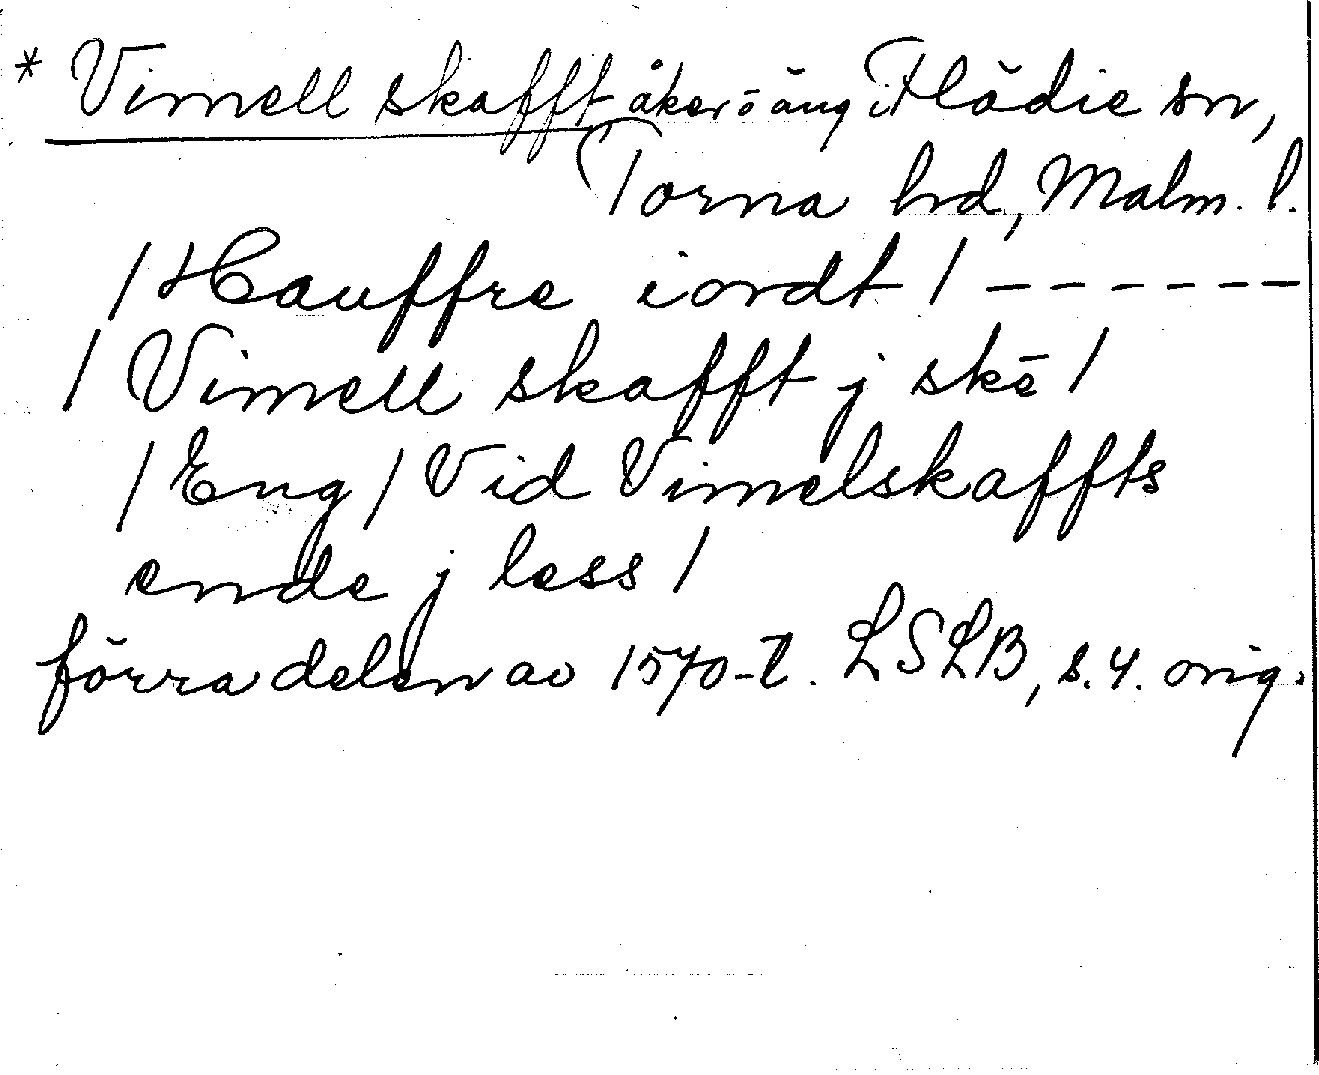 * Vimell skafft åker o äng i Flädie sn,
Torna hd, Malm. l.
/ Hauffre iordt / - - - - - -
/ Vimell skafft j skē /
/ Eng / Vid Vimelskaffts
ende j less /
förra delen av 1570-t. LSLB, s. 4. orig.